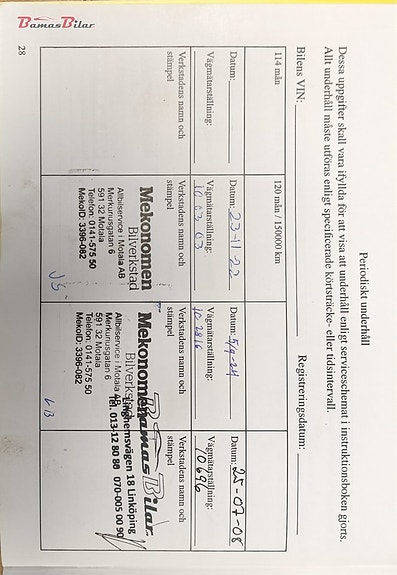 Bamas Bilar
Periodiskt underhåll
Dessa uppgifter skall vara ifyllda för att visa att underhåll enligt serviceschemat i instruktionsboken gjorts.
Allt underhåll måste utföras enligt specificerade körsträcke- eller tidsintervall.
Bilens VIN: Registreringsdatum:
114 mån
Datum:
Vägmätarställning:
Verkstadens namn och
stämpel
120 mån / 150000 km
Datum: 23-11-22
Vägmätarställning:
Verkstadens namn och
stämpel
Mekonomen
Bilverkstad
Allbilservice i Motala AB
Merkurusgatan 6
591 32 Motala
Telefon: 0141-575 50
MekoID: 3396-082
Datum: 5/9-24
Vägmätarställning:
Verkstadens namn och
stämpel
Mekonomen
Bilverkstad
Allbilservice i Motala AB
Merkurusgatan 6
591 32 Motala
Telefon: 0141-575 50
MekoID: 3396-082
Datum: 25-07-08
Vägmätarställning:
10696
Verkstadens namn och
stämpel
Bamas Bilar
Roxhemsvägen 18 Linköping
Tel. 013-12 80 88 070-005 00 90
28